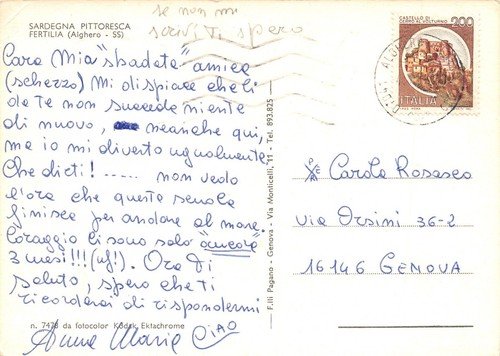 se non mi
scrivi ti spero
SARDEGNA PITTORESCA
FERTILIA (Alghero - SS)
Cara Mia "sbadata" amica
(scherzo) Mi dispiace che lì
da te non succede niente
di nuovo, neanche qui,
ma io mi diverto ugualmente
Che dici! ..... non vedo
l'ora che questa scuola
finisce per andare al mare.
Coraggio ci sono solo "ancora"
3 mesi!!! (uf!). Ora Ti
saluto, spero che ti
ricorderai di rispondermi
n. 7478 da fotocolor Kodak Ektachrome
Anna Maria CIAO
F.lli Pagano - Genova - Via Monticelli, 11 - Tel. 893.825
CASTELLO DI
CERRO AL VOLTURNO
200
ITALIA
Carola Rosasco
via Orsini 36-2
16146 GENOVA